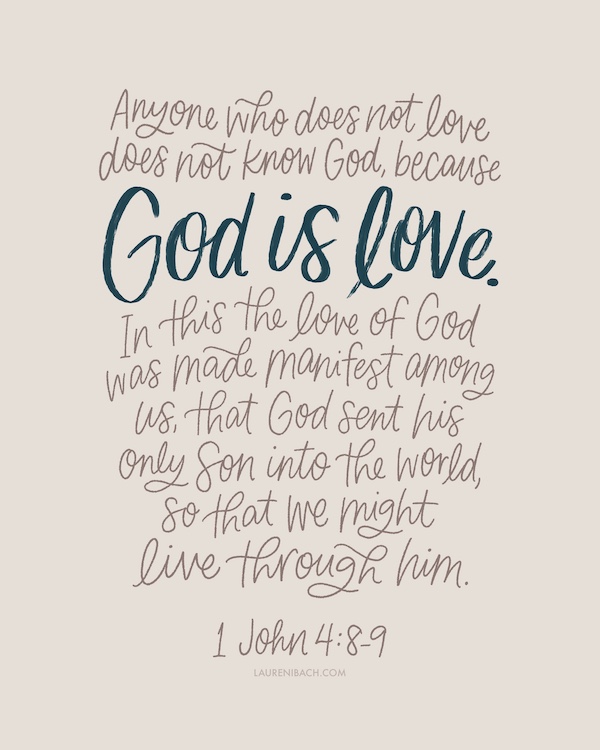 Anyone who does not love
does not know God, because
God is love.
In this the love of God
was made manifest among
us, that God sent his
only Son into the world,
so that we might
live through him.
1 John 4:8-9
LAURENIBACH.COM